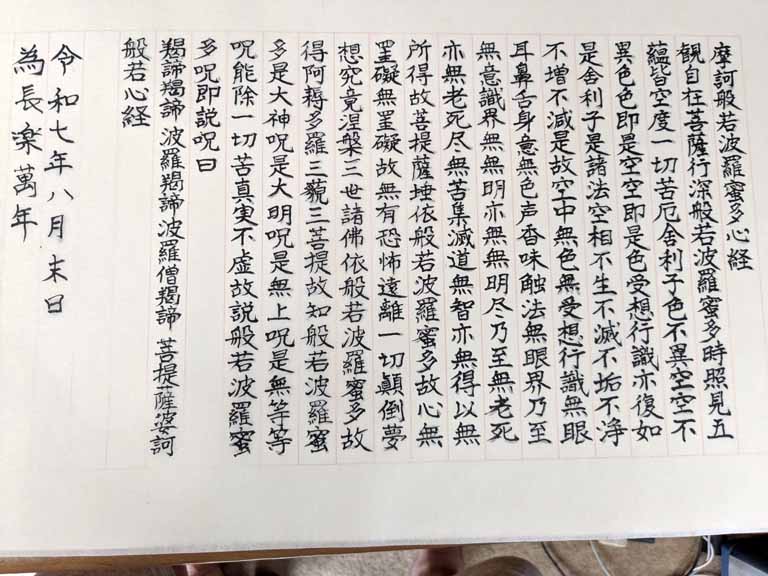 摩訶般若波羅蜜多心経
観自在菩薩行深般若波羅蜜多時照見五
蘊皆空度一切苦厄舎利子色不異空空不
異色色即是空空即是色受想行識亦復如
是舎利子是諸法空相不生不滅不垢不浄
不増不減是故空中無色無受想行識無眼
耳鼻舌身意無色声香味触法無眼界乃至
無意識界無無明亦無無明尽乃至無老死
亦無老死尽無苦集滅道無智亦無得以無
所得故菩提薩埵依般若波羅蜜多故心無
罣礙無罣礙故無有恐怖遠離一切顛倒夢
想究竟涅槃三世諸佛依般若波羅蜜多故
得阿耨多羅三藐三菩提故知般若波羅蜜
多是大神呪是大明呪是無上呪是無等等
呪能除一切苦真実不虚故説般若波羅蜜
多呪即説呪曰
羯諦羯諦 波羅羯諦 波羅僧羯諦 菩提薩婆訶
般若心経
令和七年八月末日
為長楽萬年